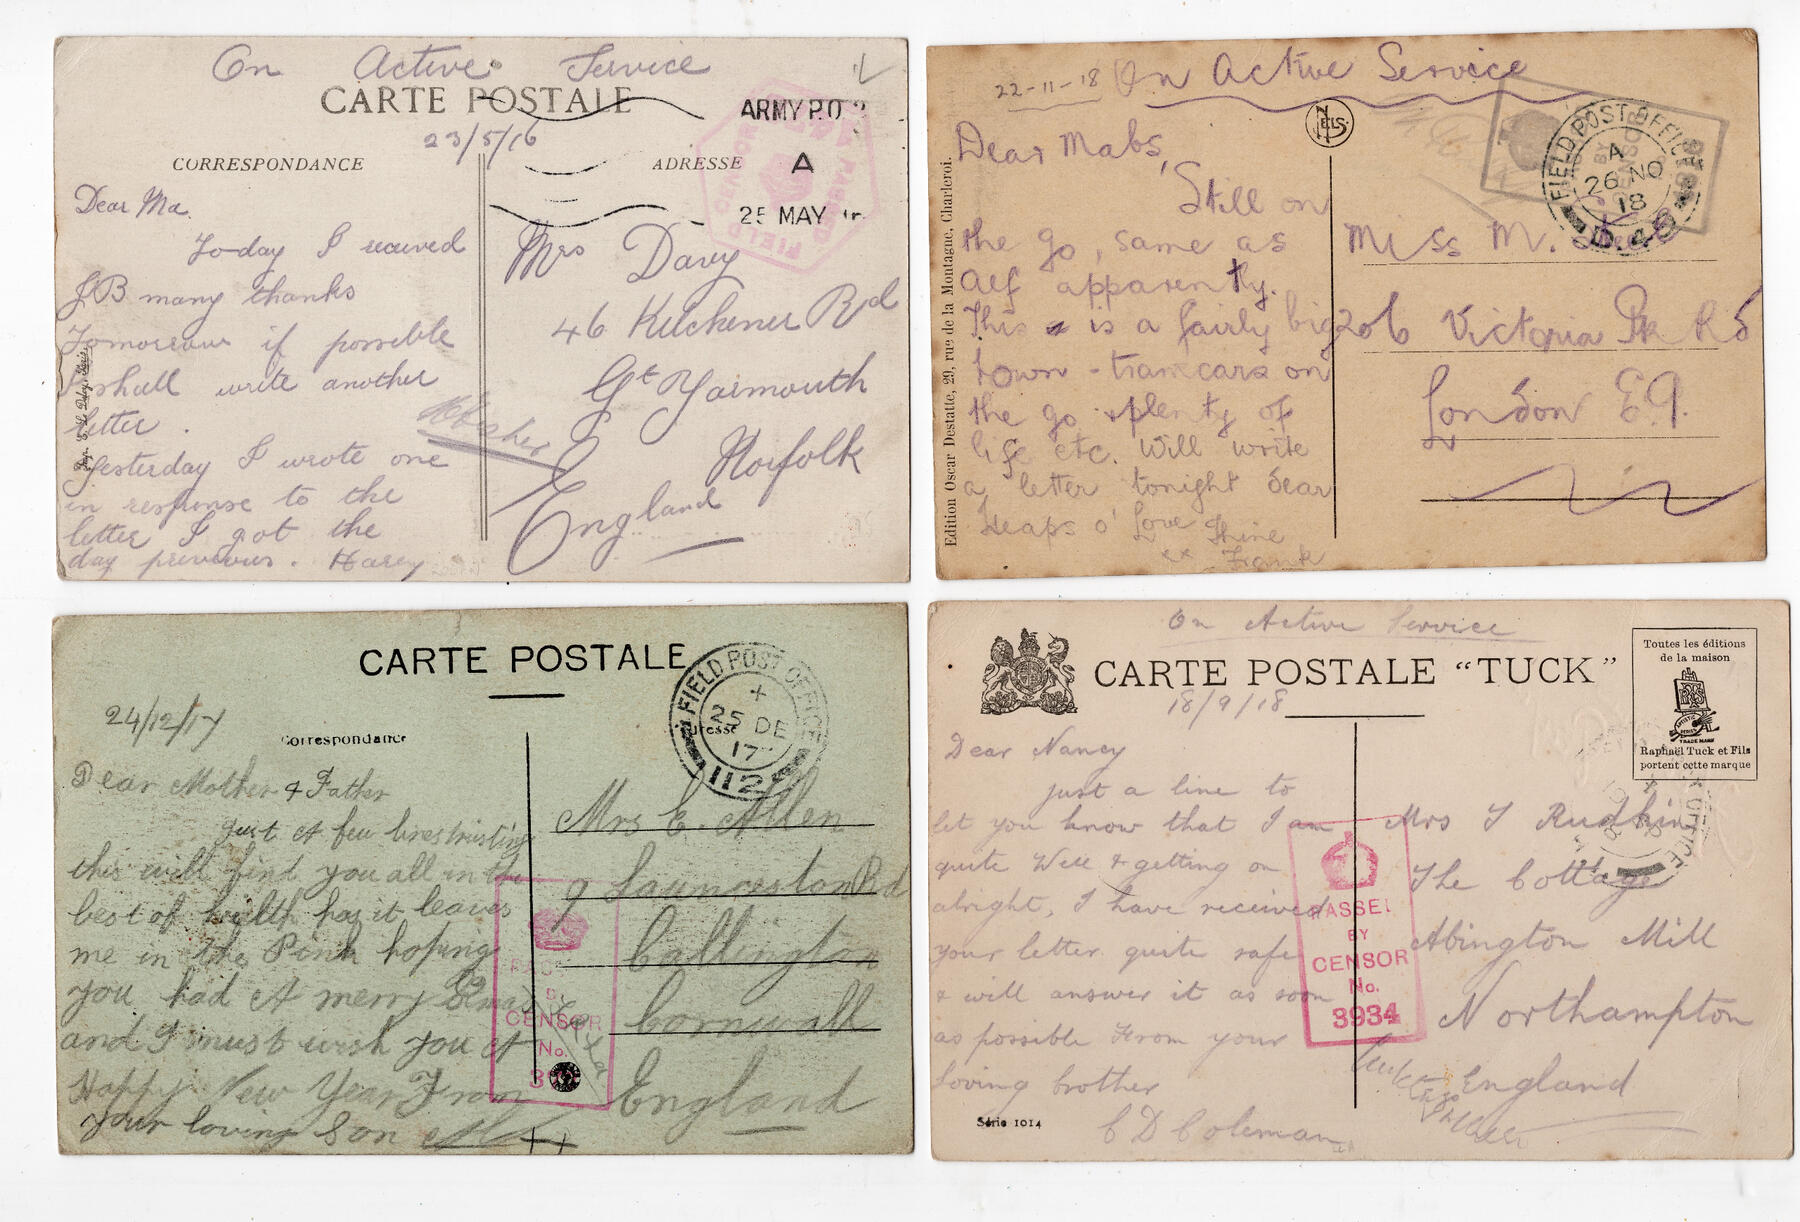 On Active Service
CARTE POSTALE
23/5/16
CORRESPONDANCE
ADRESSE
ARMY P.O. 2
A
25 MAY
PASSED FIELD CENSOR
Dear Ma.
To-day I received
JB many thanks
Tomorrow if possible
I shall write another
letter.
Yesterday I wrote one
in response to the
letter I got the
day previous. Harry
Mrs Davy
46 Kitchener Rd
Gt Yarmouth
Norfolk
England
22-11-18 On Active Service
NELS
Edition Oscar Destatte, 29, rue de la Montagne, Charleroi.
FIELD POST OFFICE
A
26 NO
18
D.4
BY
CENSOR
Dear Mabs,
Still on
the go, same as
Alf apparently.
This is a fairly big
town - tramcars on
the go & plenty of
life etc. Will write
a letter tonight dear
Heaps o' Love Thine
xx Frank
Miss M.
206 Victoria Pk Rd
London E9.
CARTE POSTALE
24/12/17
Correspondance
FIELD POST OFFICE
+
25 DE
17
112
Dear Mother & Father
just A few lines trusting
this will find you all in the
best of health has it leaves
me in the Pink hoping
you had A merry Xmas
and I must wish you A
Happy New Year From
your loving Son
Mrs E. Allen
9 Launceston Rd
Callington
Cornwall
England
CENSOR
No.
On Active Service
CARTE POSTALE “TUCK”
18/9/18
Toutes les éditions
de la maison
ARTISTIC SERIES
TRADE MARK
Raphaël Tuck et Fils
portent cette marque
Dear Nancy
just a line to
let you know that I am
quite Well & getting on
alright, I have received
your letter quite safe
& will answer it as soon
as possible From your
Loving brother
C D Coleman
Série 1014
PASSED
BY
CENSOR
No.
3934
Mrs T Rudkin
The Cottage
Abington Mill
Northampton
England